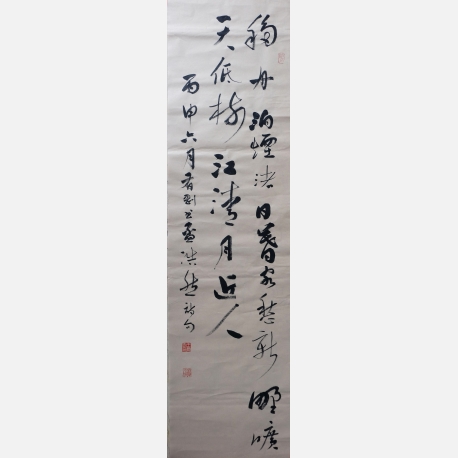 移舟泊煙渚日暮客愁新野曠
天低樹江清月近人
丙申六月書孟浩然詩句